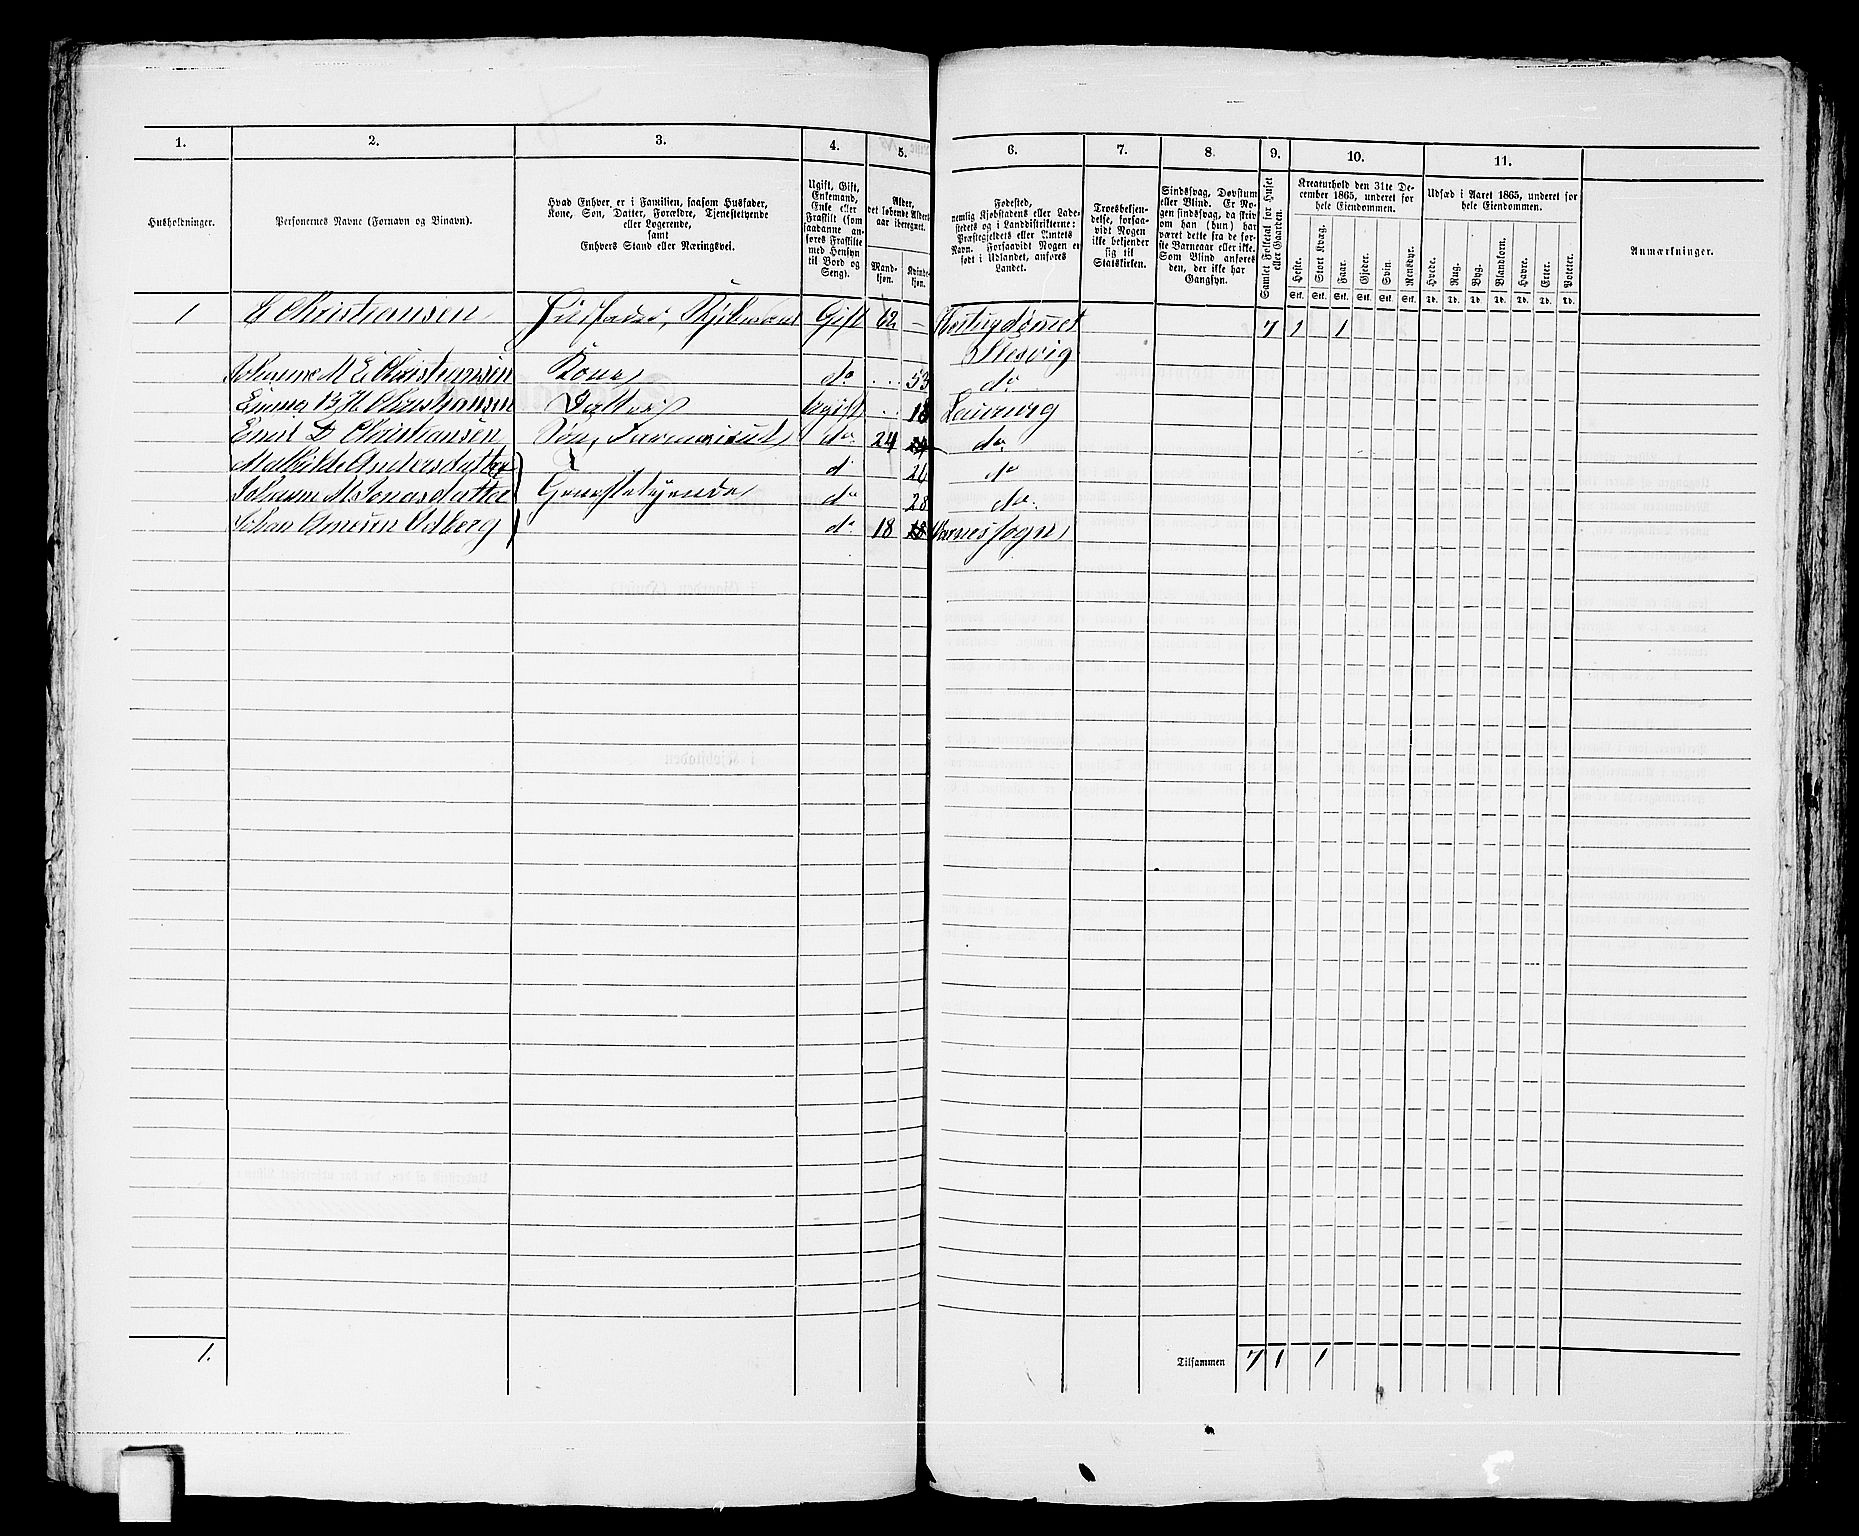 1. 2. 3. 4. 5. 6. 7. 8. 9. 10. 11.
Husholdninger.
Personernes Navne (Fornavn og Binavn).
Hvad Enhver er i Familien, saasom Husfader,
Kone, Søn, Datter, Forældre, Tjenestetyende
eller Logerende,
samt
Enhvers Stand eller Næringsvei.
Ugift, Gift,
Enkemand,
Enke eller
Fraskilt (som
saadanne an-
føres Fraskilte
med Hensyn
til Bord og
Seng).
Alder,
det løbende Alders-
aar iberegnet.
Mand-
kjøn.
Kvinde-
kjøn.
Fødested,
nemlig Kjøbstadens eller Lade-
stedets og i Landdistrikterne:
Præstegjeldets eller Amtets
Navn. Forsaavidt Nogen er
født i Udlandet, anføres
Landet.
Troesbekjen-
delse, forsaa-
vidt Nogen
ikke bekjender
sig til
Statskirken.
Sindssvag, Døvstum
eller Blind. Er No-
gen sindssvag, da skriv
om han (hun) har
været dette fra de før-
ste Barneaar eller ikke.
Som Blind anføres
den, der ikke har
Gangsyn.
Samlet Folketal for Huset
eller Gaarden.
Kreaturhold den 31te De-
cember 1865, underet for
hele Eiendommen.
Heste. Stort Kvæg. Faar. Gjeder. Svin. Rensdyr.
Stk. Stk. Stk. Stk. Stk. Stk.
Udsæd i Aaret 1865, underet for
hele Eiendommen.
Hvede. Rug. Byg. Blandkorn. Havre. Erter. Poteter.
Td. Td. Td. Td. Td. Td. Td.
Anmærkninger.
1 Christiansen Husfader, Gift 62 — Hertugdømmet 7 1 1
Slesvig
Johanne M E Christiansen Kone do 53 do
Emma B H Christiansen Datter Ugift 18 Laurvig
Emil D Christiansen Søn, Farmaceut do 24 do
Mathilde Andersdatter d 26 do
Johanne M Jonasdatter Tjenestetyende do 28 do
Johan Odberg do 18 sogn
1. Tilsammen 7 1 1